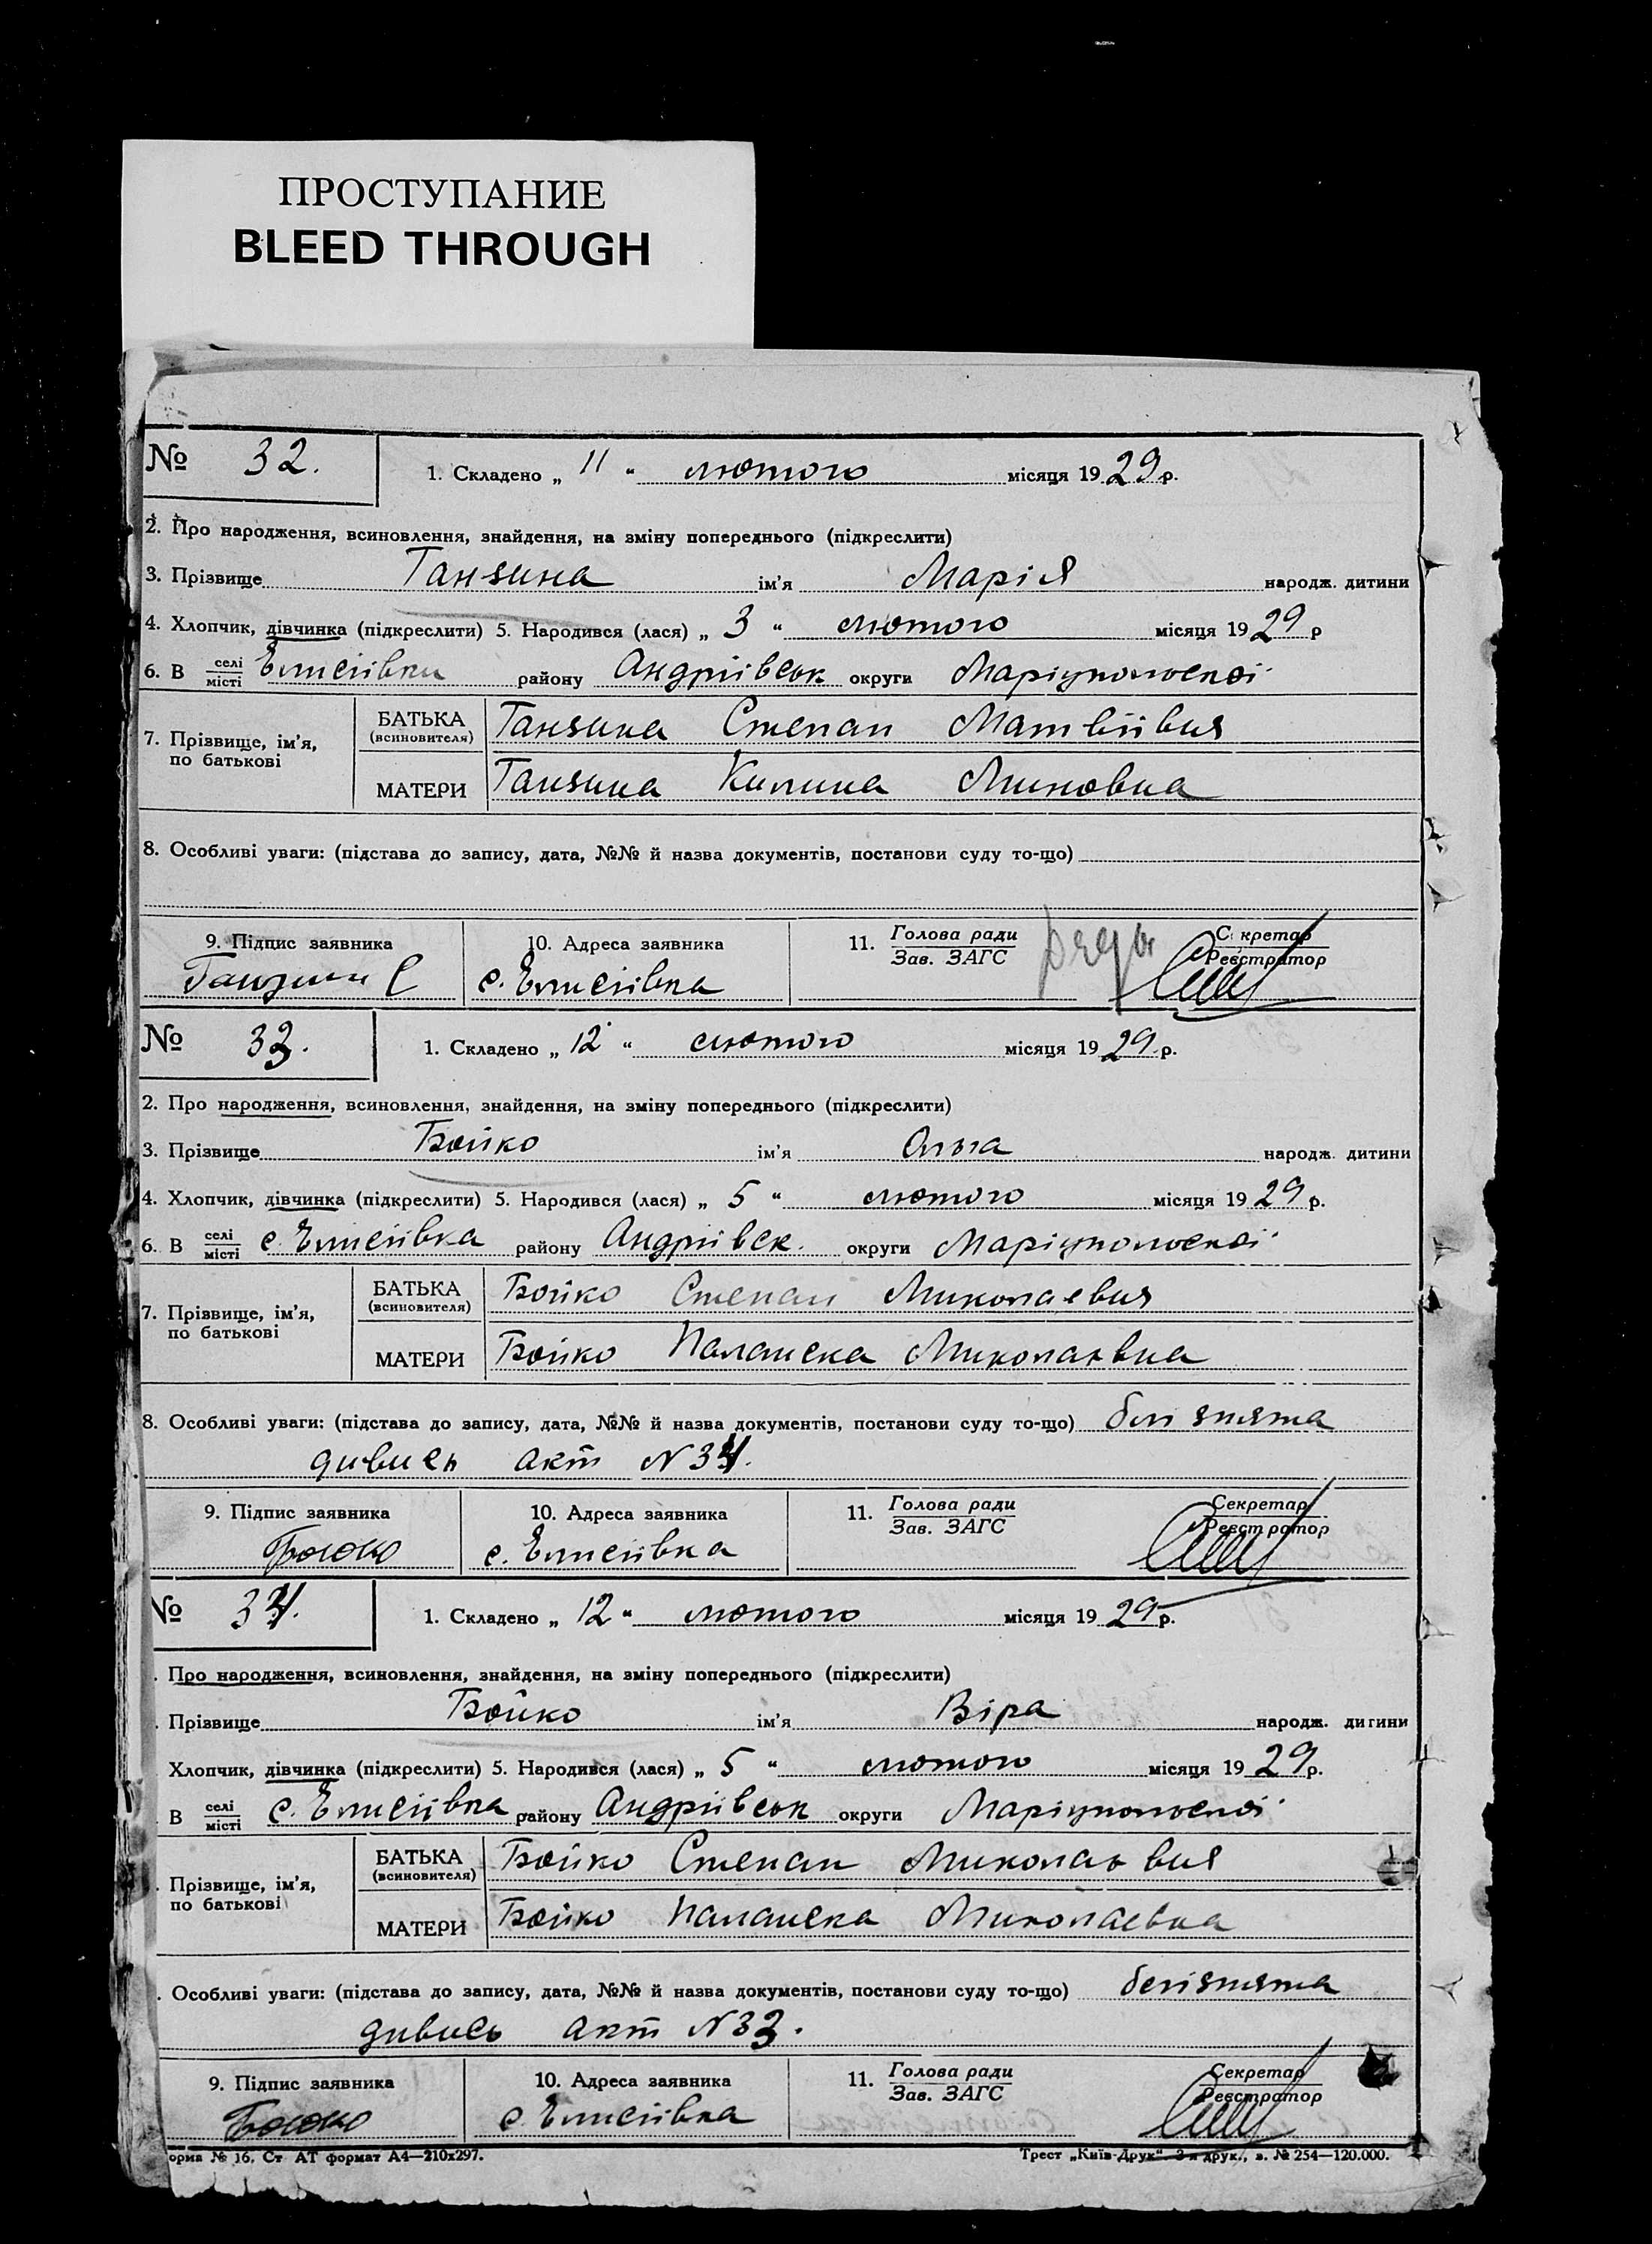 ПРОСТУПАНИЕ
BLEED THROUGH
№ 32. 1. Складено „ 11 “ лютого місяця 1929 р.
2. Про народження, всиновлення, знайдення, на зміну попереднього (підкреслити)
3. Прізвище Ганзина ім’я Марія народж. дитини
4. Хлопчик, дівчинка (підкреслити) 5. Народився (лася) „ 3 “ лютого місяця 1929 р
6. В селі/місті Елисіївки району Андріївськ округи Маріупольської
7. Прізвище, ім’я, по батькові
БАТЬКА (всиновителя) Ганзина Степан Матвіївич
МАТЕРИ Ганзина Килина Миновна
8. Особливі уваги: (підстава до запису, дата, №№ й назва документів, постанови суду то-що)
9. Підпис заявника 10. Адреса заявника 11. Голова ради/Зав. ЗАГС Секретар/Реєстратор
Ганзина С с. Елисіївка
№ 33. 1. Складено „ 12 “ лютого місяця 1929 р.
2. Про народження, всиновлення, знайдення, на зміну попереднього (підкреслити)
3. Прізвище Бойко ім’я Ольга народж. дитини
4. Хлопчик, дівчинка (підкреслити) 5. Народився (лася) „ 5 “ лютого місяця 1929 р.
6. В селі/місті с. Елисіївка району Андріївск. округи Маріупольської
7. Прізвище, ім’я, по батькові
БАТЬКА (всиновителя) Бойко Степан Миколаевич
МАТЕРИ Бойко Паланека Миколаєвна
8. Особливі уваги: (підстава до запису, дата, №№ й назва документів, постанови суду то-що) близнята
дивись акт N 34.
9. Підпис заявника 10. Адреса заявника 11. Голова ради/Зав. ЗАГС Секретар/Реєстратор
Бойко с. Елисіївка
№ 34. 1. Складено „ 12 “ лютого місяця 1929 р.
. Про народження, всиновлення, знайдення, на зміну попереднього (підкреслити)
. Прізвище Бойко ім’я Віра народж. дитини
Хлопчик, дівчинка (підкреслити) 5. Народився (лася) „ 5 “ лютого місяця 1929 р.
. В селі/місті с. Елисіївка району Андріївськ округи Маріупольської
. Прізвище, ім’я, по батькові
БАТЬКА (всиновителя) Бойко Степан Миколаєвич
МАТЕРИ Бойко Паланека Миколаевна
. Особливі уваги: (підстава до запису, дата, №№ й назва документів, постанови суду то-що) близнята
дивись акт N 33.
9. Підпис заявника 10. Адреса заявника 11. Голова ради/Зав. ЗАГС Секретар/Реєстратор
Бойко с. Елисіївка
орма № 16. Ст АТ формат А4—210х297. Трест „Київ-Друк“. 3-я друк., з. № 254—120.000.